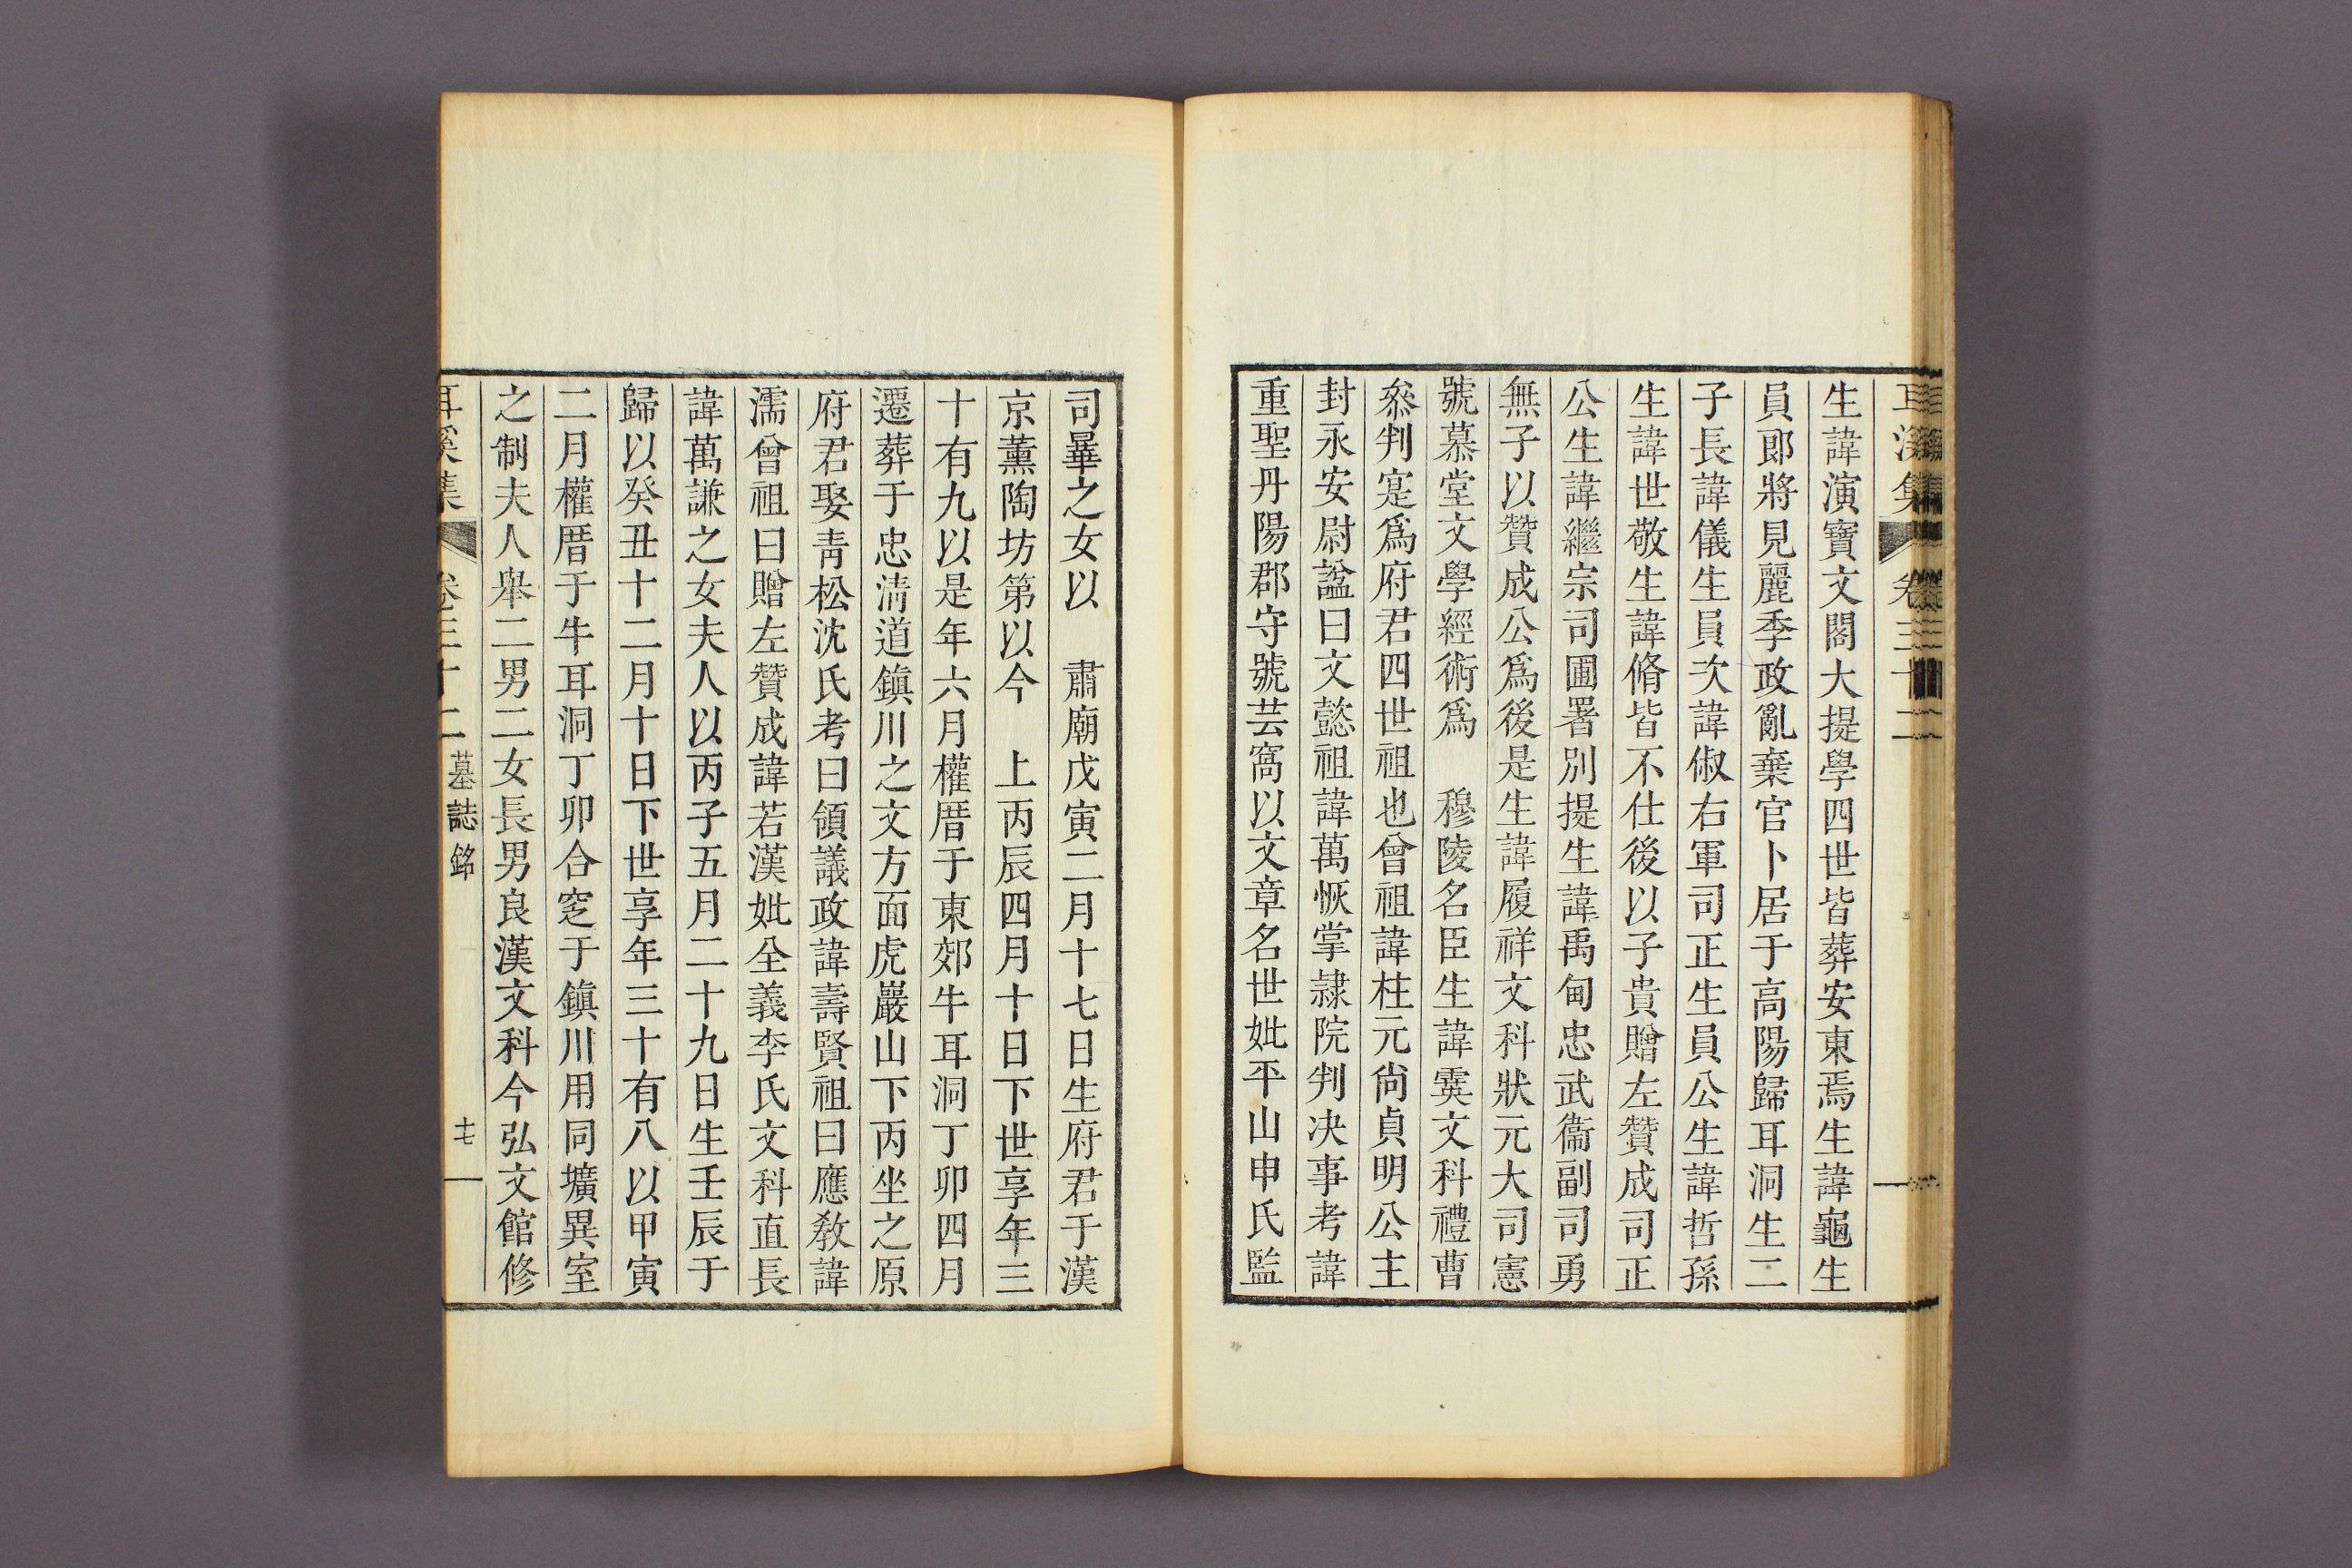 生諱演寶文閣大提學四世皆葬安東焉生諱龜生
員郎將見麗季政亂棄官卜居于高陽歸耳洞生二
子長諱儀生員次諱俶右軍司正生員公生諱哲孫
生諱世敬生諱脩皆不仕後以子貴贈左贊成司正
公生諱繼宗司圃署別提生諱禹甸忠武衞副司勇
無子以贊成公爲後是生諱履祥文科狀元大司憲
號慕堂文學經術爲　穆陵名臣生諱霙文科禮曹
叅判寔爲府君四世祖也曾祖諱柱元尙貞明公主
封永安尉諡曰文懿祖諱萬恢掌隷院判决事考諱
重聖丹陽郡守號芸窩以文章名世妣平山申氏監
司畢之女以　肅廟戊寅二月十七日生府君于漢
京薰陶坊第以今　上丙辰四月十日下世享年三
十有九以是年六月權厝于東郊牛耳洞丁卯四月
遷葬于忠淸道鎭川之文方面虎巖山下丙坐之原
府君娶靑松沈氏考曰領議政諱壽賢祖曰應敎諱
濡曾祖曰贈左贊成諱若漢妣全義李氏文科直長
諱萬謙之女夫人以丙子五月二十九日生壬辰于
歸以癸丑十二月十日下世享年三十有八以甲寅
二月權厝于牛耳洞丁卯合窆于鎭川用同壙異室
之制夫人舉二男二女長男良漢文科今弘文館修
耳溪集　卷三十二　墓誌銘　十七